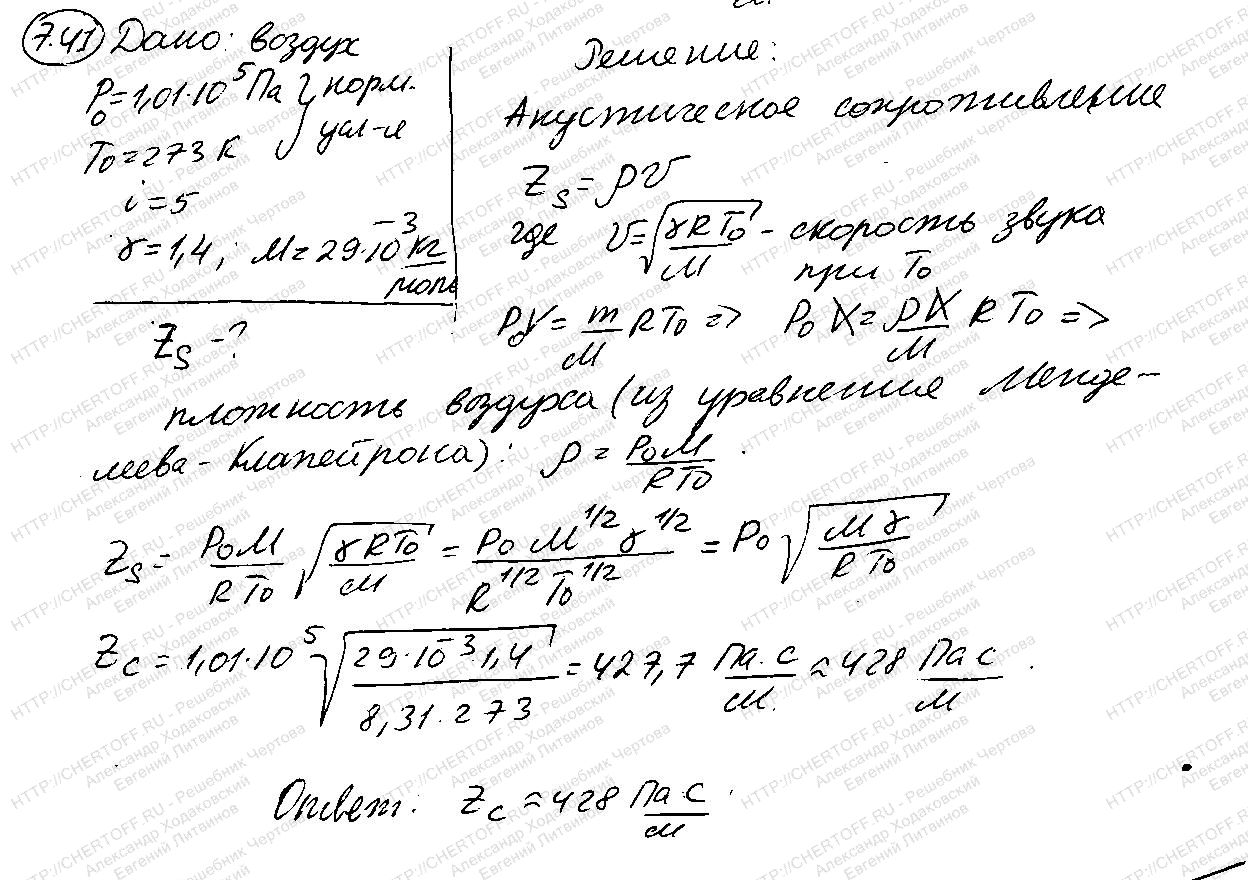 7.41 Дано: воздух
P₀=1,01·10⁵ Па } норм.
T₀=273 К } усл-я
i=5
γ=1,4; M=29·10⁻³ кг/моль
Z_S-?
Решение:
Акустическое сопротивление
Z_S=ρυ
где υ=√(γRT₀/M) - скорость звука
при T₀
P₀V=m/M RT₀ => P₀V=ρV/M RT₀ =>
плотность воздуха (из уравнения Менде-
леева-Клапейрона): ρ=P₀M/RT₀.
Z_S=P₀M/RT₀ √(γRT₀/M)=P₀M^1/2 γ^1/2/R^1/2 T₀^1/2=P₀√(Mγ/RT₀)
Z_C=1,01·10⁵√(29·10⁻³·1,4/8,31·273)=427,7 Па·с/м.≈428 Па с/м.
Ответ: Z_C≈428 Па·с/м.
HTTP://CHERTOFF.RU - Решебник Чертова
Александр Ходаковский
Евгений Литвинов